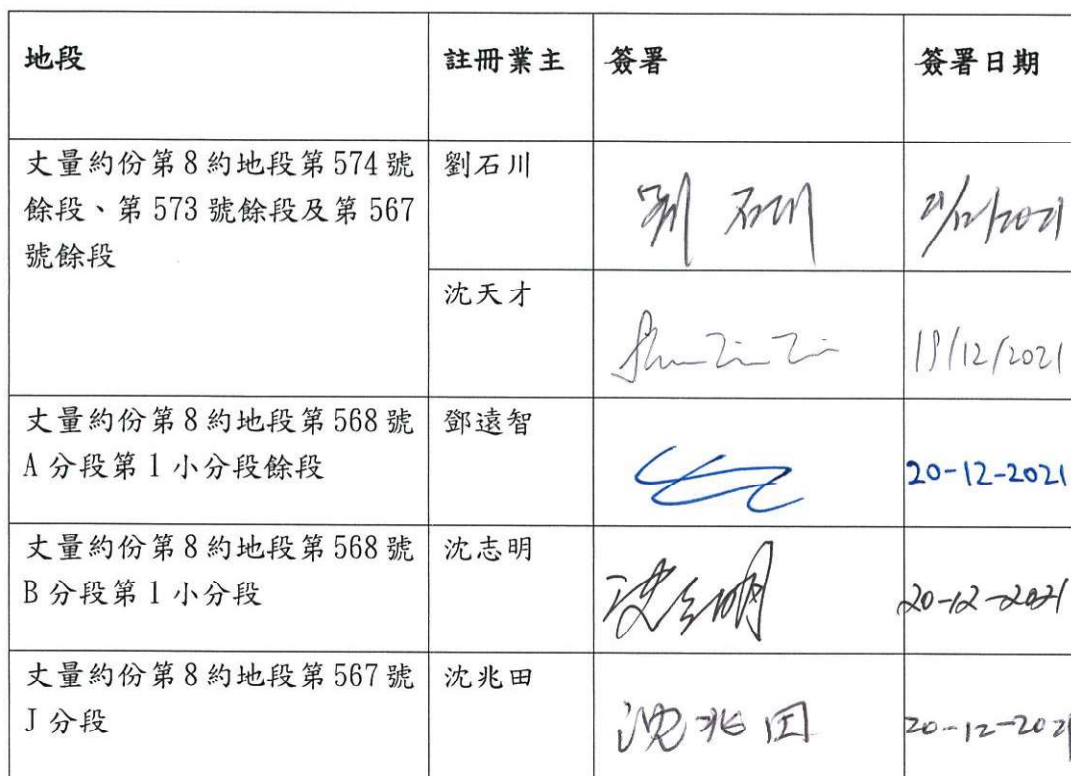 地段 註冊業主 簽署 簽署日期
丈量約份第8約地段第574號 劉石川
餘段、第573號餘段及第567 劉石川 21/12/2021
號餘段
沈天才
19/12/2021
丈量約份第8約地段第568號 鄧遠智
A分段第1小分段餘段 20-12-2021
丈量約份第8約地段第568 號 沈志明
B分段第1小分段 20-12-2021
丈量約份第8約地段第567號 沈兆田
J分段 沈兆田 20-12-2021